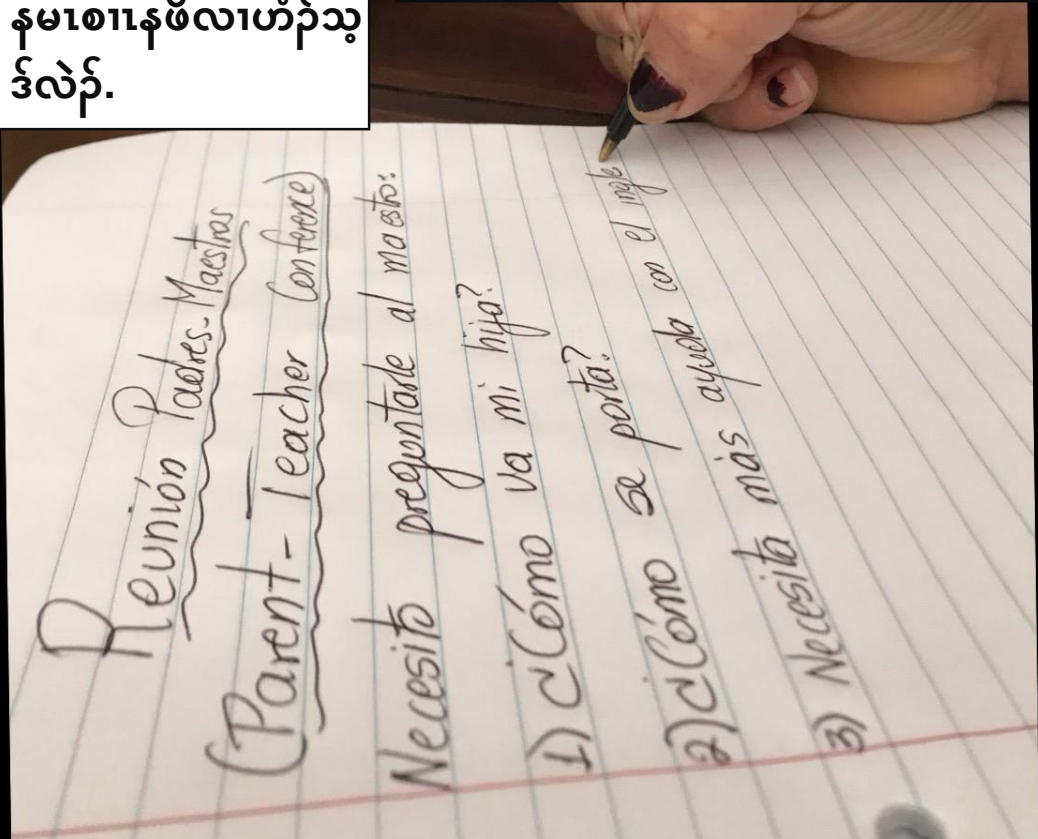 နမၤစၢၤနဖိလၢဟံၣ်သ့
ဒ်လဲၣ်.
Reunión Padres-Maestros
(Parent-Teacher Conference)
Necesito preguntarle al maestro:
1) ¿Cómo va mi hija?
2) ¿Cómo se porta?
3) Necesita más ayuda con el ingle